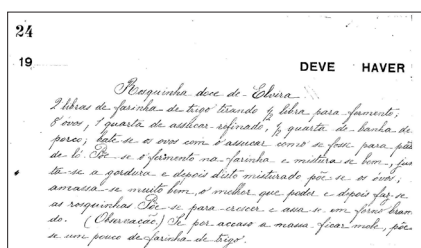 24
19
DEVE HAVER
Rosquinha doce de Elvira
2 libras de farinha de trigo tirando ½ libra para formento;
8 ovos, 1 quarta de assucar refinado, ½ quarta de banha de
porco; bate-se os ovos com o assucar como se fosse para pão
de ló. Põe-se o formento na farinha e mistura-se bem, jun
ta-se a gordura e depois disto misturado põe-se os ovos;
amassa-se muito bem, o melhor que poder e depois faz-se
as rosquinhas Põe-se para crescer e assa-se em forno bran
do. (Observacão) Si por accaso a massa ficar mole, põe
se um pouco de farinha de trigo.